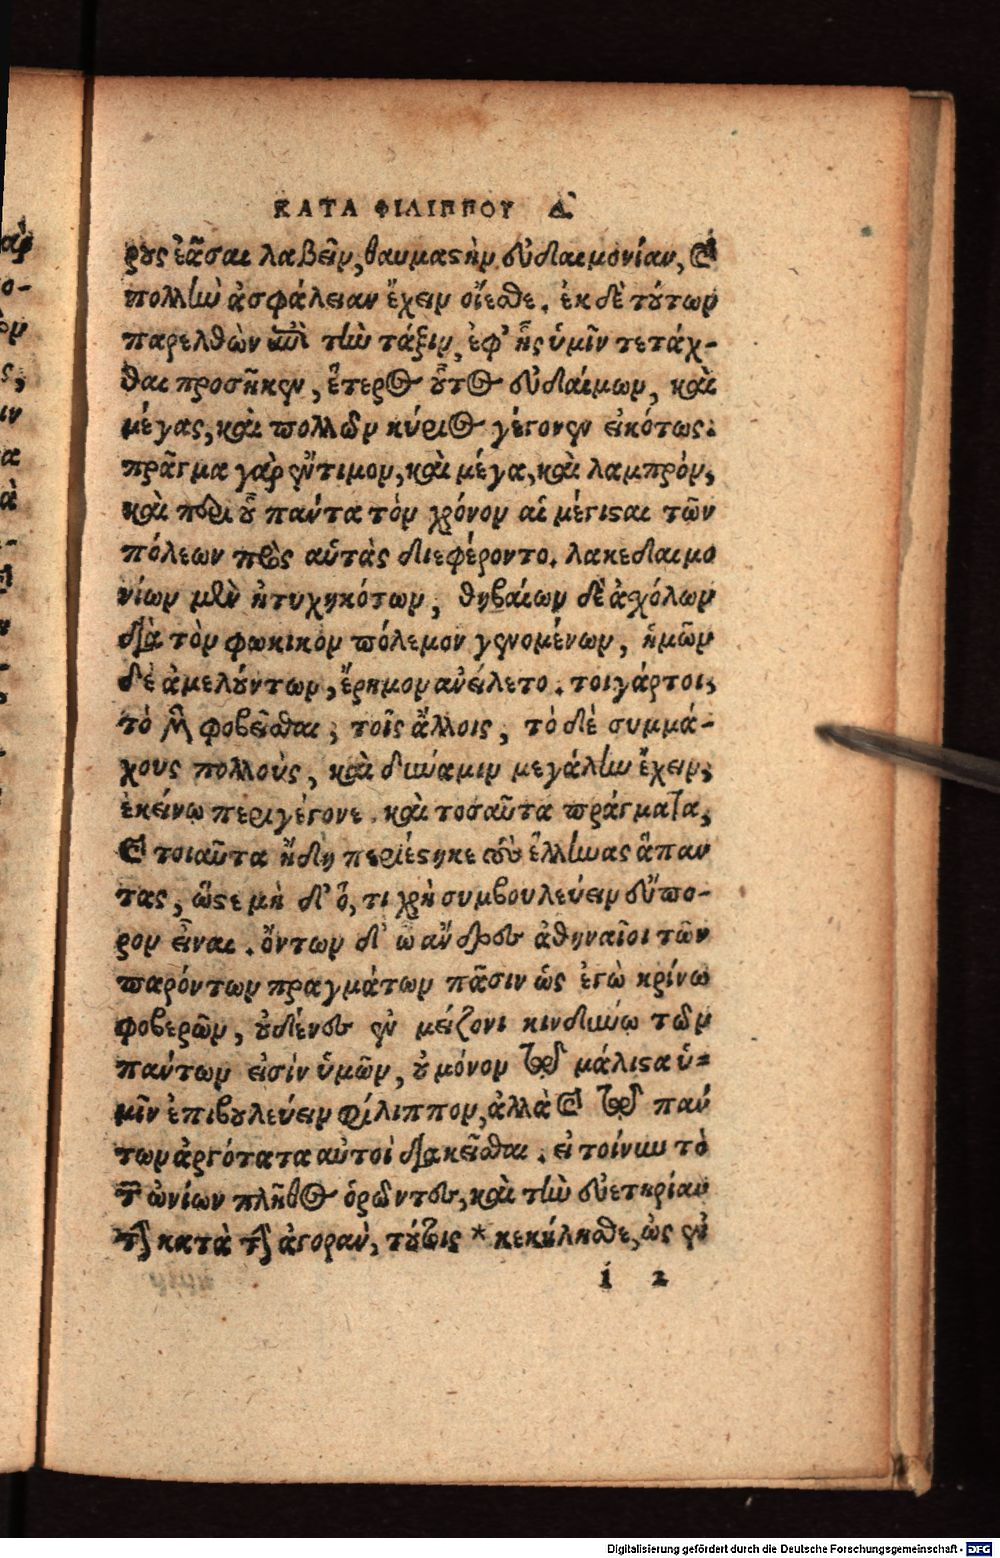 ΚΑΤΑ ΦΙΛΙΠΠΟΥ Δ.
ρους ἐᾶσαι λαβεῖν, θαυμαστὴν εὐδαιμονίαν, καὶ
πολλὴν ἀσφάλειαν ἔχειν οἴεσθε. ἐκ δὲ τούτων
παρελθὼν ἐπὶ τὴν τάξιν, ἐφ' ἧς ὑμῖν τετάχ-
θαι προσῆκεν, ἕτερος οὗτος εὐδαίμων, καὶ
μέγας, καὶ πολλῶν κύριος γέγονεν εἰκότως.
πρᾶγμα γὰρ ἔντιμον, καὶ μέγα, καὶ λαμπρὸν,
καὶ περὶ οὗ πάντα τὸν χρόνον αἱ μέγισται τῶν
πόλεων πρὸς αὑτὰς διεφέροντο. λακεδαιμο
νίων μὲν ἠτυχηκότων, θηβαίων δὲ ἀσχόλων
διὰ τὸν φωκικὸν πόλεμον γενομένων, ἡμῶν
δὲ ἀμελούντων, ἔρημον ἀνείλετο. τοιγάρτοι,
τὸ μὲν φοβεῖσθαι, τοῖς ἄλλοις, τὸ δὲ συμμά-
χους πολλοὺς, καὶ δύναμιν μεγάλην ἔχειν,
ἐκείνῳ περιγέγονε. καὶ τοσαῦτα πράγματα,
καὶ τοιαῦτα ἤδη περιέστηκε τοὺς ἕλληνας ἅπαν
τας, ὥστε μὴ δ' ὅ, τι χρὴ συμβουλεύειν εὔπο-
ρον εἶναι. ὄντων δ' ὦ ἄνδρες ἀθηναῖοι τῶν
παρόντων πραγμάτων πᾶσιν ὡς ἐγὼ κρίνω
φοβερῶν, οὐδένες ἐν μείζονι κινδύνῳ τῶν
πάντων εἰσὶν ὑμῶν, οὐ μόνον τῷ μάλιστα ὑ-
μῖν ἐπιβουλεύειν φίλιππον, ἀλλὰ καὶ τῷ πάν
των ἀργότατα αὐτοὶ διακεῖσθαι. εἰ τοίνυν τὸ
τῶν ὠνίων πλῆθος ὁρῶντες, καὶ τὴν εὐετηρίαν
τὴν κατὰ τὴν ἀγορὰν, τούτοις * κεκήλησθε, ὡς ἐν
i 2
Digitalisierung gefördert durch die Deutsche Forschungsgemeinschaft - DFG